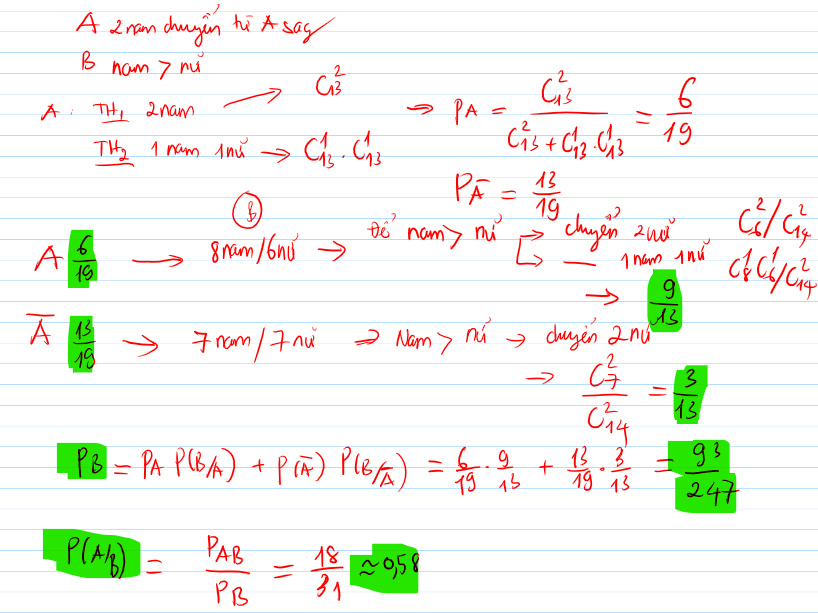 A 2 nam chuyển từ A sag
B nam > nữ
A: TH1 2 nam → C₁₃² → PA = C₁₃² / (C₁₃² + C₁₃¹ . C₁₃¹) = 6/19
TH2 1 nam 1 nữ → C₁₃¹ . C₁₃¹
PĀ = 13/19
B
A 6/19 → 8 nam / 6 nữ → Để nam > nữ → chuyển 2 nữ C₆² / C₁₄²
→ — 1 nam 1 nữ C₈¹ C₆¹ / C₁₄²
→ 9/13
Ā 13/19 → 7 nam / 7 nữ ⇒ Nam > nữ → chuyển 2 nữ
→ C₇² / C₁₄² = 3/13
PB = PA P(B/A) + P(Ā) P(B/Ā) = 6/19 . 9/13 + 13/19 . 3/13 = 93/247
P(A/B) = PAB / PB = 18/31 ≈ 0,58